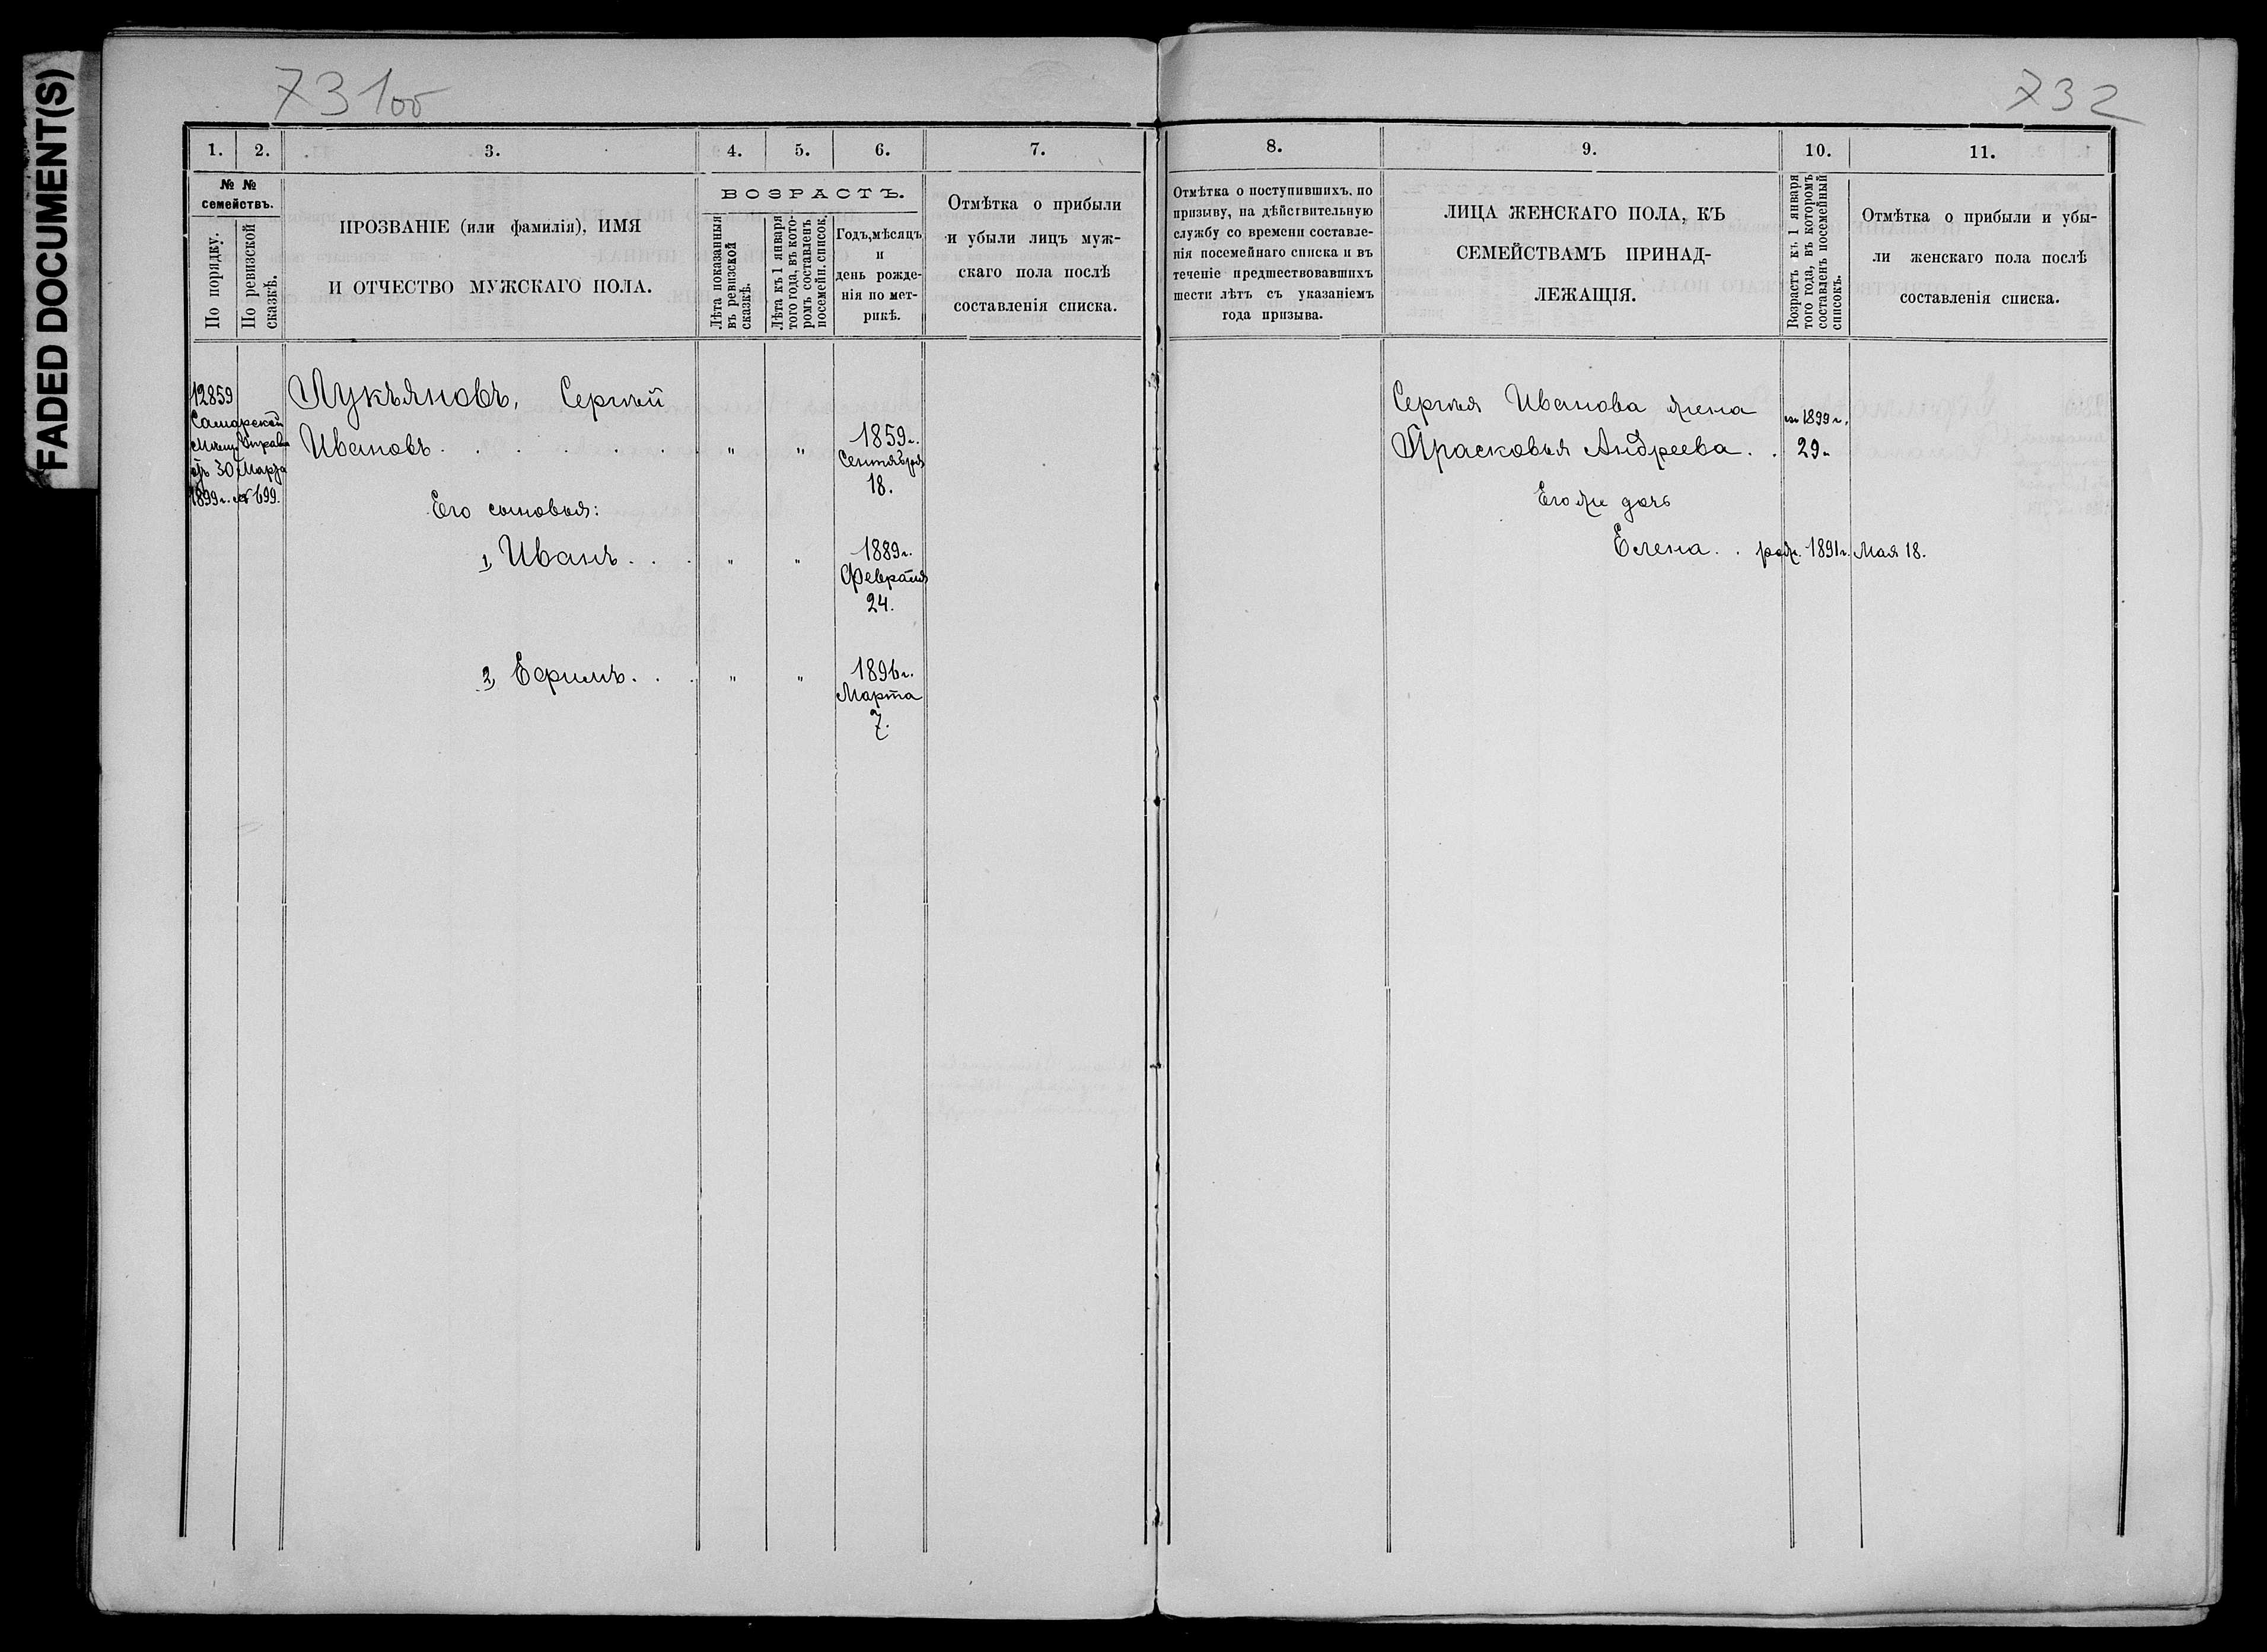 FADED DOCUMENT(S)
731об
732
1. 2. 3. 4. 5. 6. 7.
№ №
семействъ.
По порядку.
По ревизской
сказкѣ.
ПРОЗВАНІЕ (или фамилія), ИМЯ
И ОТЧЕСТВО МУЖСКАГО ПОЛА.
ВОЗРАСТЪ.
Лѣта показанныя
въ ревизской
сказкѣ.
Лѣта къ 1 января
того года, въ кото-
ромъ составленъ
посемейн. список.
Годъ, мѣсяцъ
и
день рожде-
нія по мет-
рикѣ.
Отмѣтка о прибыли
и убыли лицъ муж-
скаго пола послѣ
составленія списка.
12859
Самарской
Мѣщ. Управы
отъ 30 Марта
1899 г. № 699.
Лукъяновъ, Сергѣй
Ивановъ . . . . . . . „ „ 1859 г.
Сентября
18.
Его сыновья:
1, Иванъ . . . „ „ 1889 г.
Февраля
24.
2, Ефимъ . . . „ „ 1896 г.
Марта
7.
8. 9. 10. 11.
Отмѣтка о поступившихъ, по
призыву, на дѣйствительную
службу со времени составле-
нія посемейнаго списка и въ
теченіе предшествовавшихъ
шести лѣтъ съ указаніемъ
года призыва.
ЛИЦА ЖЕНСКАГО ПОЛА, КЪ
СЕМЕЙСТВАМЪ ПРИНАД-
ЛЕЖАЩІЯ.
Возрастъ къ 1 января
того года, въ которомъ
составленъ посемейный
списокъ.
Отмѣтка о прибыли и убы-
ли женскаго пола послѣ
составленія списка.
Сергѣя Иванова жена 1899 г.
Прасковья Андреева . . 29
Его же дочь
Елена . . рож. 1891 г. Мая 18.